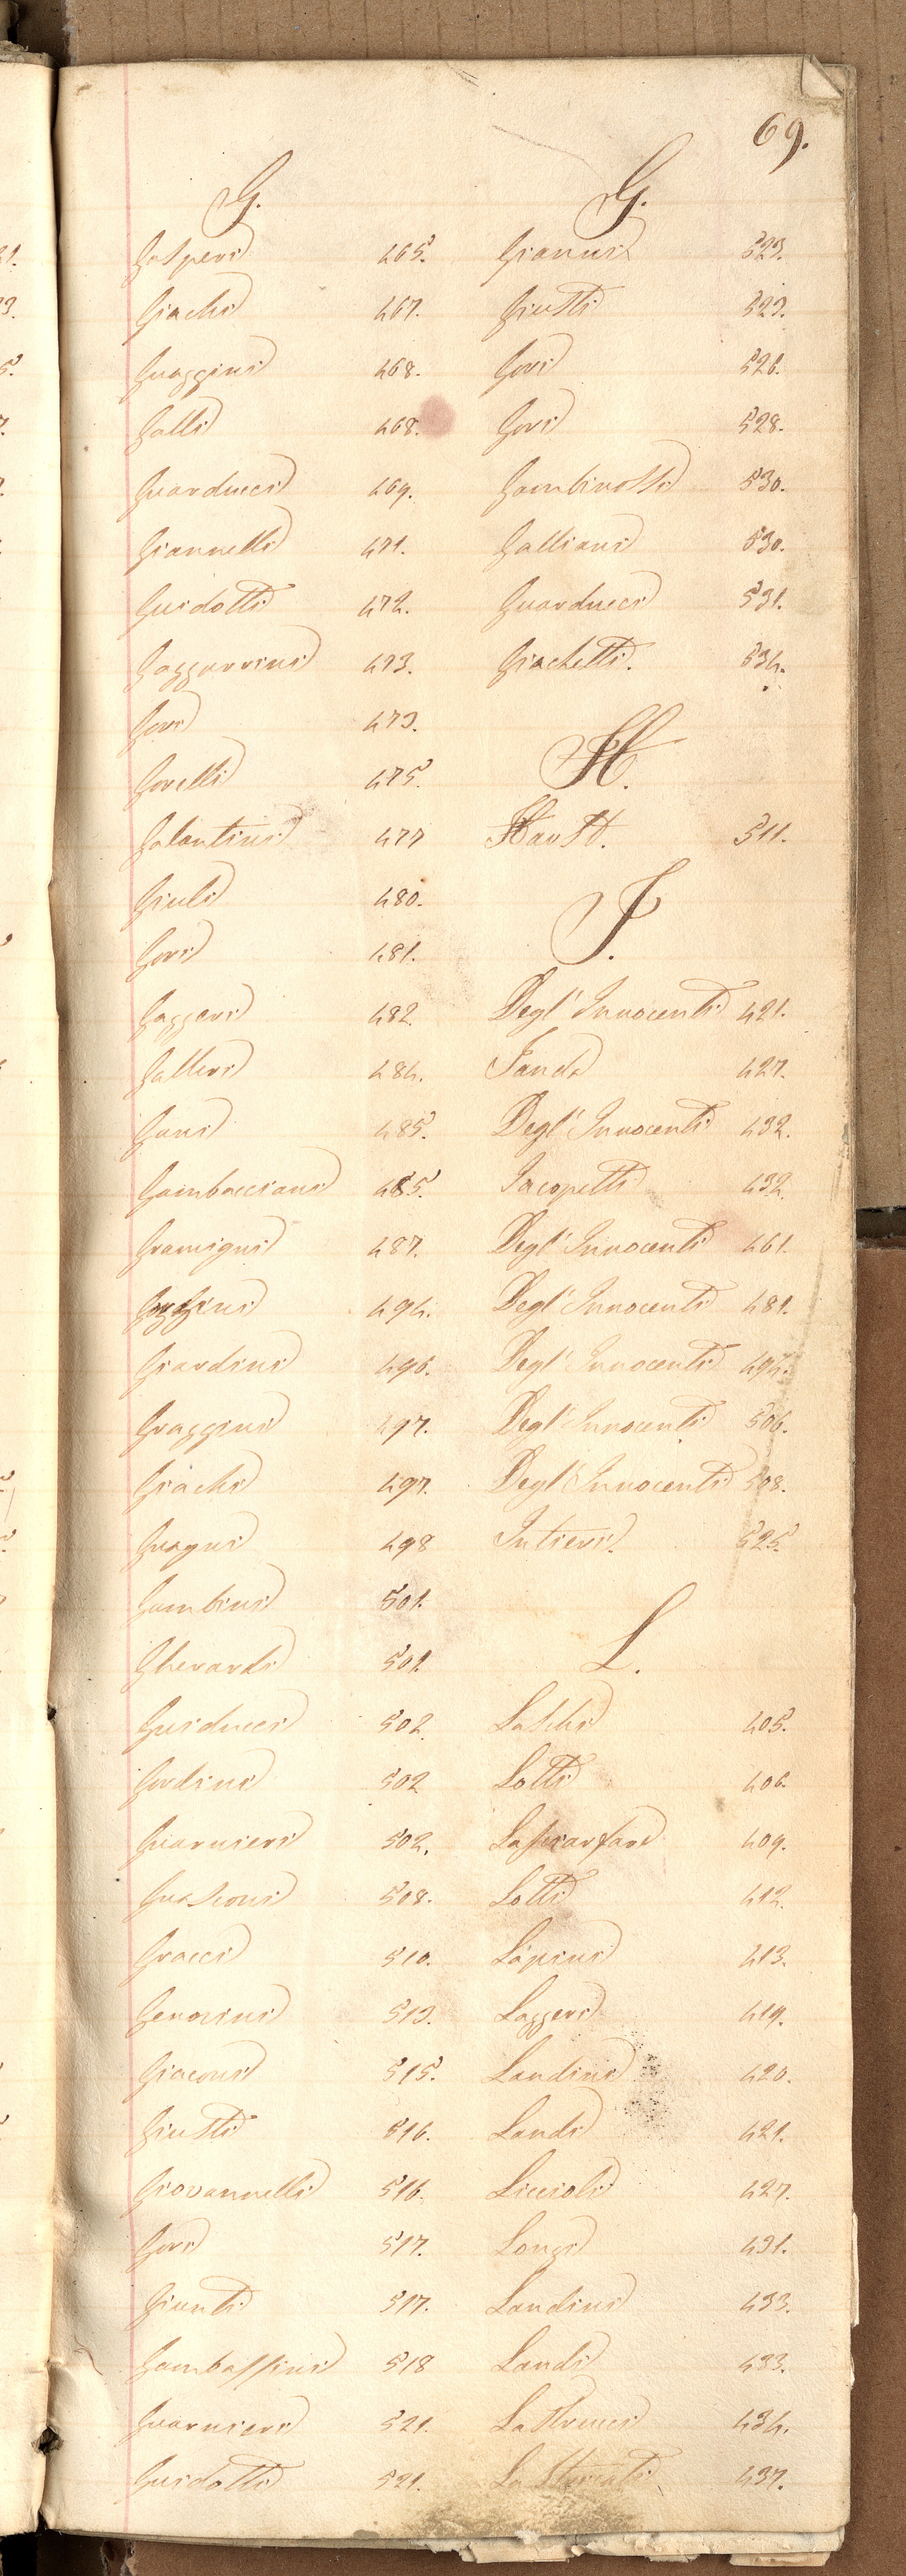 69.
G.
Gasperi 465.
Giachi 467.
Guaggini 468.
Galli 468.
Guarducci 469.
Giannelli 471.
Guidotti 472.
Gazzarrini 473.
Gori 473.
Gorelli 475.
Galantini 477
Giuli 480.
Gori 481.
Gaggeri 482.
Galleri 484.
Gani 485.
Gambacciani 485.
Gramigni 487.
494.
Giardini 496.
Graggini 497.
Giachi 497.
Guagni 498
Gambini 501.
Gherardi 501.
Guiducci 502.
Gordini 502
Guarnieri 502.
Guasconi 508.
Gracci 510.
Gerocini 513.
Giaconi 515.
Giusti 516.
Giovannelli 516.
Gori 517.
Giunti 517.
Gambassini 518
Guarnieri 521.
Guidotti 521.
G.
Giannini 523.
Giusti 523.
Gori 526.
Gori 528.
Gambinossi 530.
Galliani 530.
Guarducci 531.
Giachetti. 534.
H.
Haust. 511.
I.
Degl' Innocenti 421.
Landi 427.
Degl' Innocenti 432.
Iacopetti 432.
Degl' Innocenti 461.
Degl' Innocenti 481.
Degl' Innocenti 494.
Degl' Innocenti 506.
Degl' Innocenti 508.
Intieri. 525.
L.
Laschi 405.
Lotti 406.
409.
Lotti 412.
Lapini 413.
Laggeri 419.
Landini 420.
Landi 421.
Liccioli 427.
Longi 431.
Landini 433.
Landi 433.
Lastrucci 434.
437.